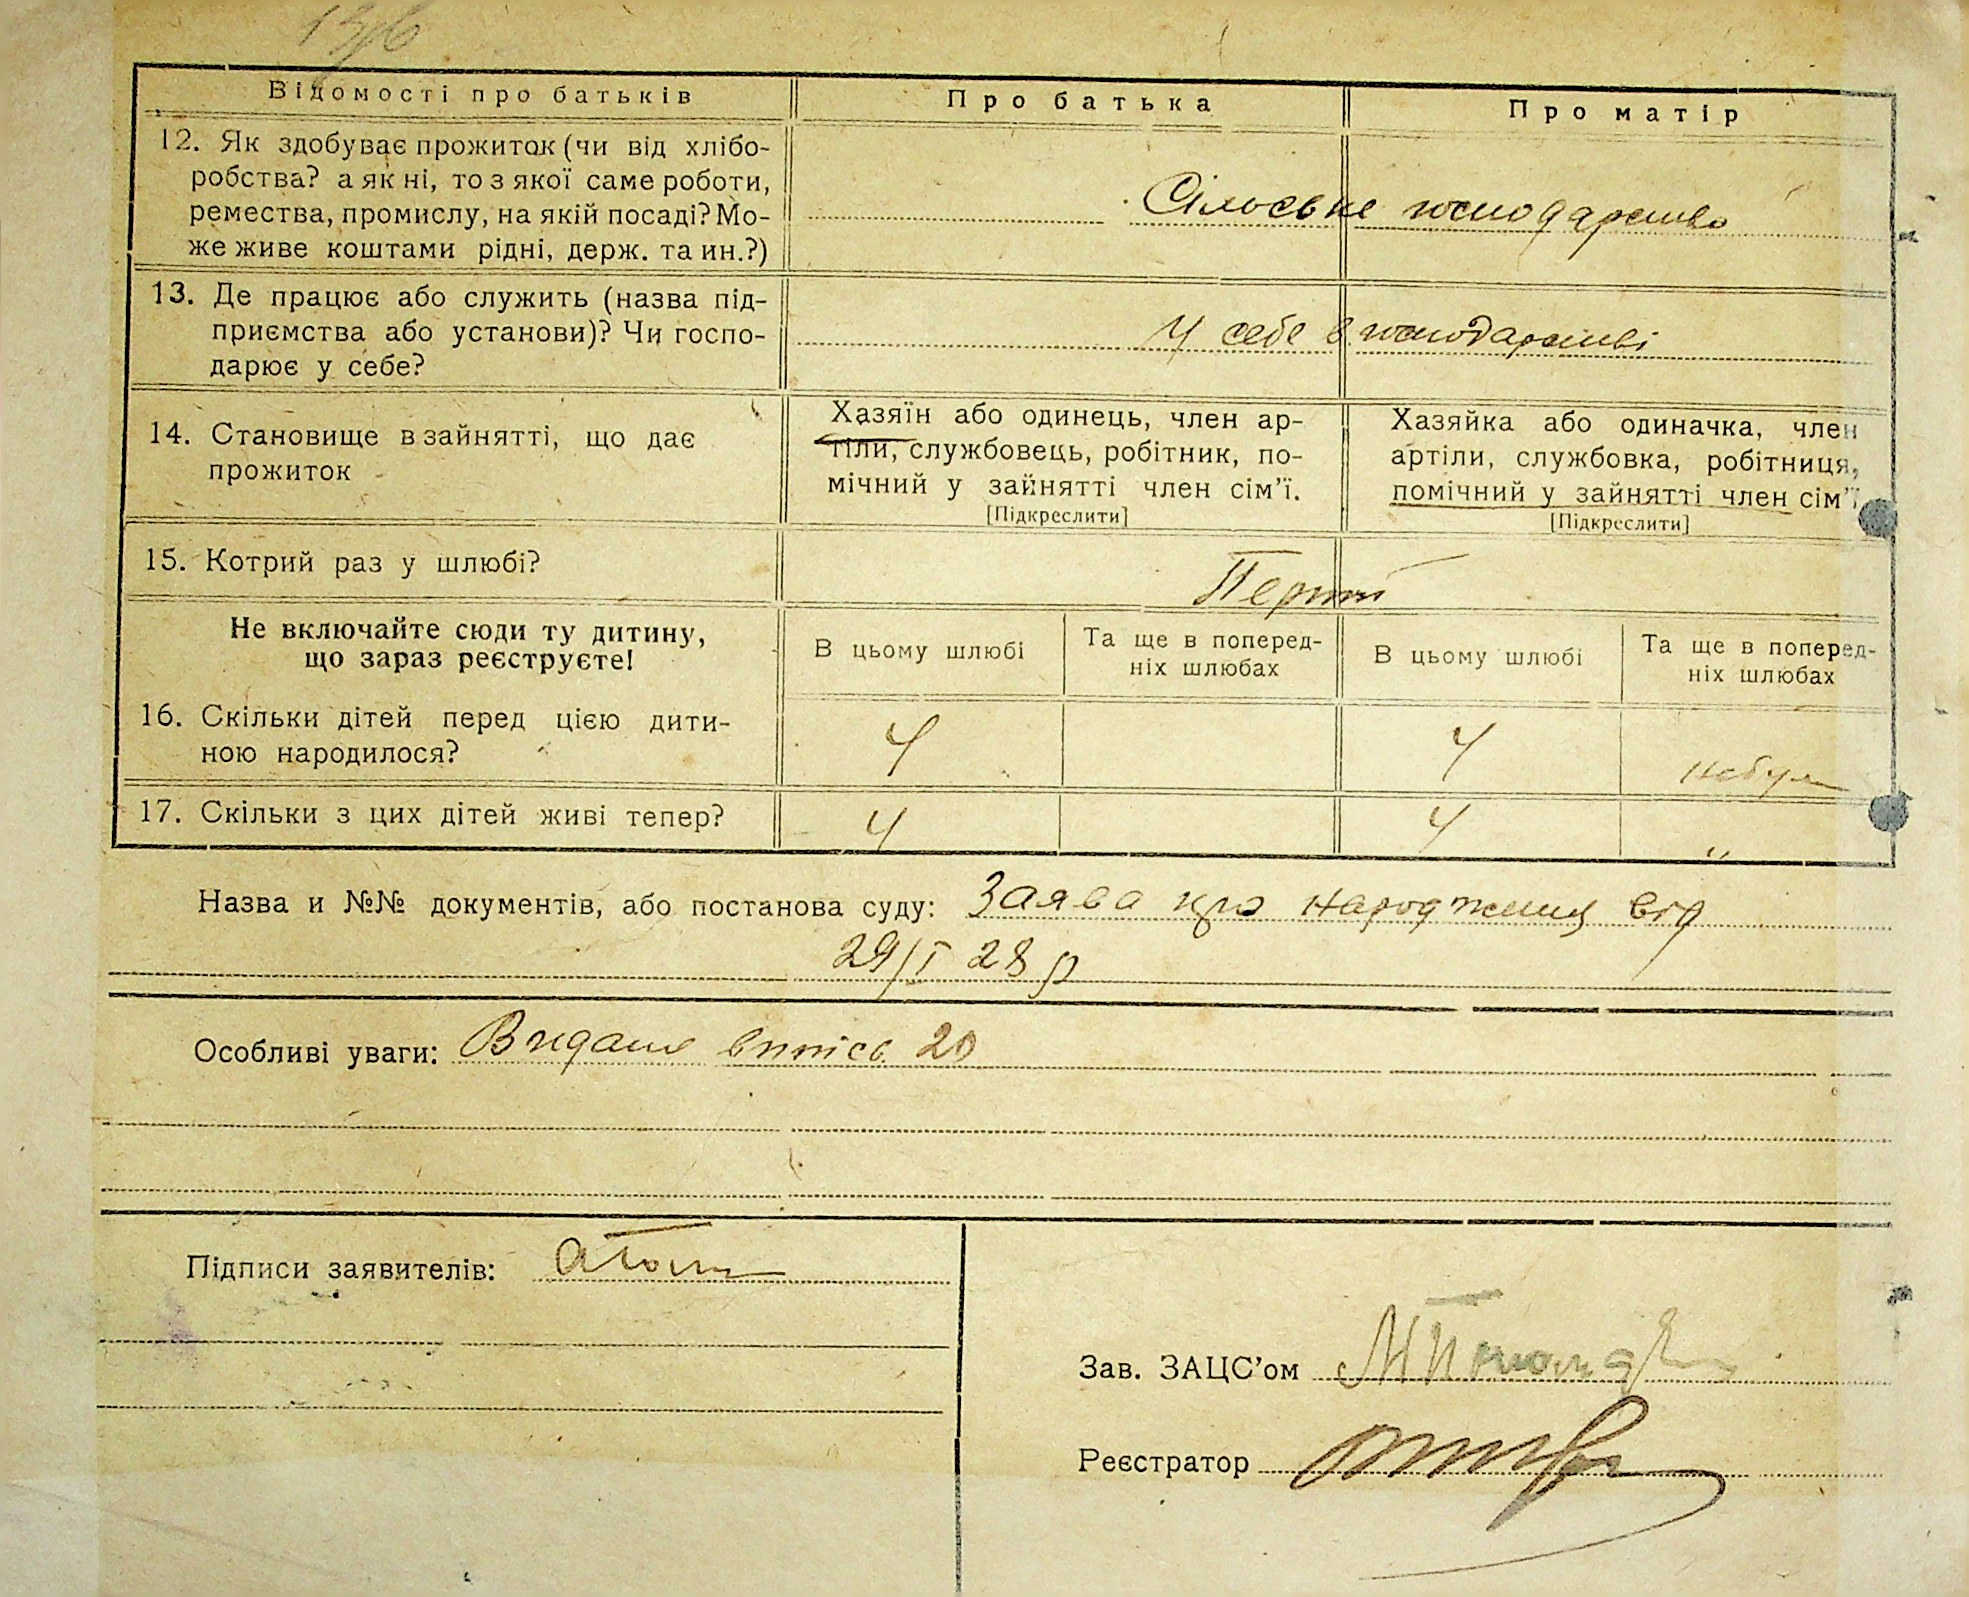 Відомості про батьків
Про батька
Про матір
12. Як здобуває прожиток (чи від хлібо-
робства? а як ні, то з якої саме роботи,
ремества, промислу, на якій посаді? Мо-
же живе коштами рідні, держ. та ин.?)
Сільське господарство
13. Де працює або служить (назва під-
приємства або установи)? Чи госпо-
дарює у себе?
У себе в господарстві
14. Становище в зайнятті, що дає
прожиток
Хазяїн або одинець, член ар-
тіли, службовець, робітник, по-
мічний у зайнятті член сім'ї.
[Підкреслити]
Хазяйка або одиначка, член
артіли, службовка, робітниця,
помічний у зайнятті член сім'ї
[Підкреслити]
15. Котрий раз у шлюбі?
Перший
Не включайте сюди ту дитину,
що зараз реєструєте!
В цьому шлюбі
Та ще в поперед-
ніх шлюбах
В цьому шлюбі
Та ще в поперед-
ніх шлюбах
16. Скільки дітей перед цією дити-
ною народилося?
4
4
17. Скільки з цих дітей живі тепер?
4
4
"
Назва и №№ документів, або постанова суду: Заява про народження від
29/I 28 р
Особливі уваги: Видано випись 20
Підписи заявителів:
Зав. ЗАЦС'ом
Реєстратор